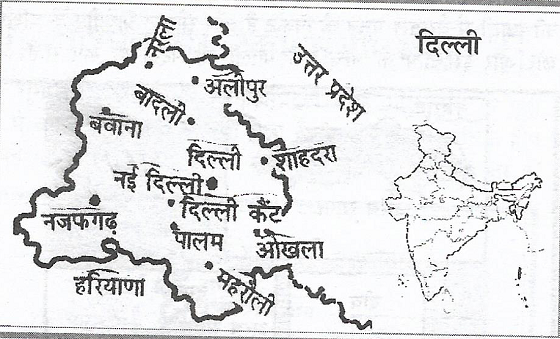 दिल्ली
नरेला
उत्तर प्रदेश
अलीपुर
बादली
बवाना
दिल्ली
शाहदरा
नई दिल्ली
नजफगढ़
दिल्ली कैंट
पालम
ओखला
हरियाणा
महरौली